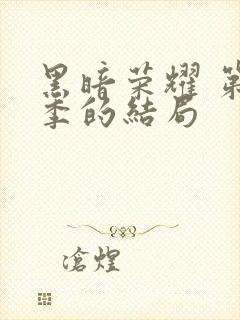 黑暗荣耀 第
季的结局
滄煌